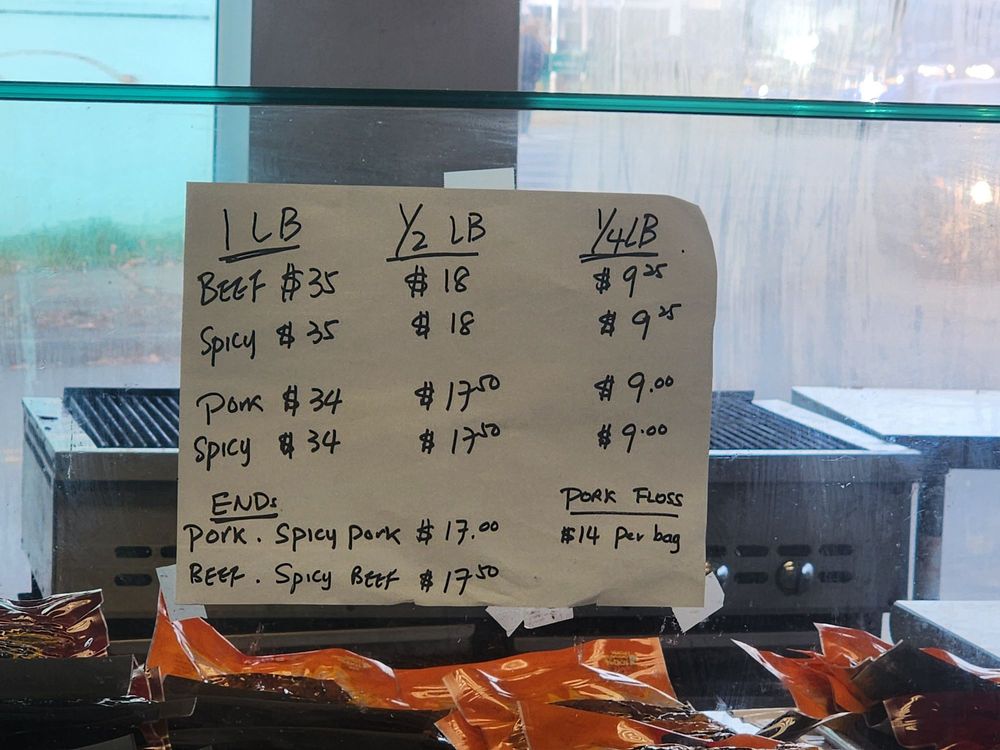 1 LB 1/2 LB 1/4 LB
BEEF $35 $18 $9 25
Spicy $35 $18 $9 25
Pork $34 $17 50 $9.00
Spicy $34 $17 50 $9.00
ENDs PORK FLOSS
Pork . Spicy Pork $17.00 $14 per bag
BEEF . Spicy BEEF $17 50